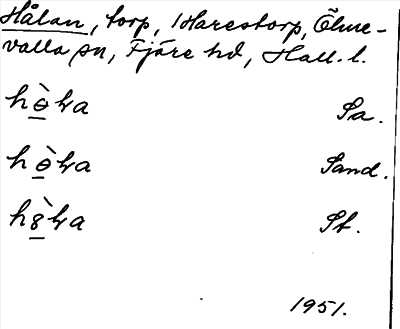 Hålan, torp, Harestorp, Ölme-
valla sn, Fjäre hd, Hall. l.
hɵ̀ɫa Sa.
hɵ̀ɫa Sand.
h8̀ɫa St.
1951.